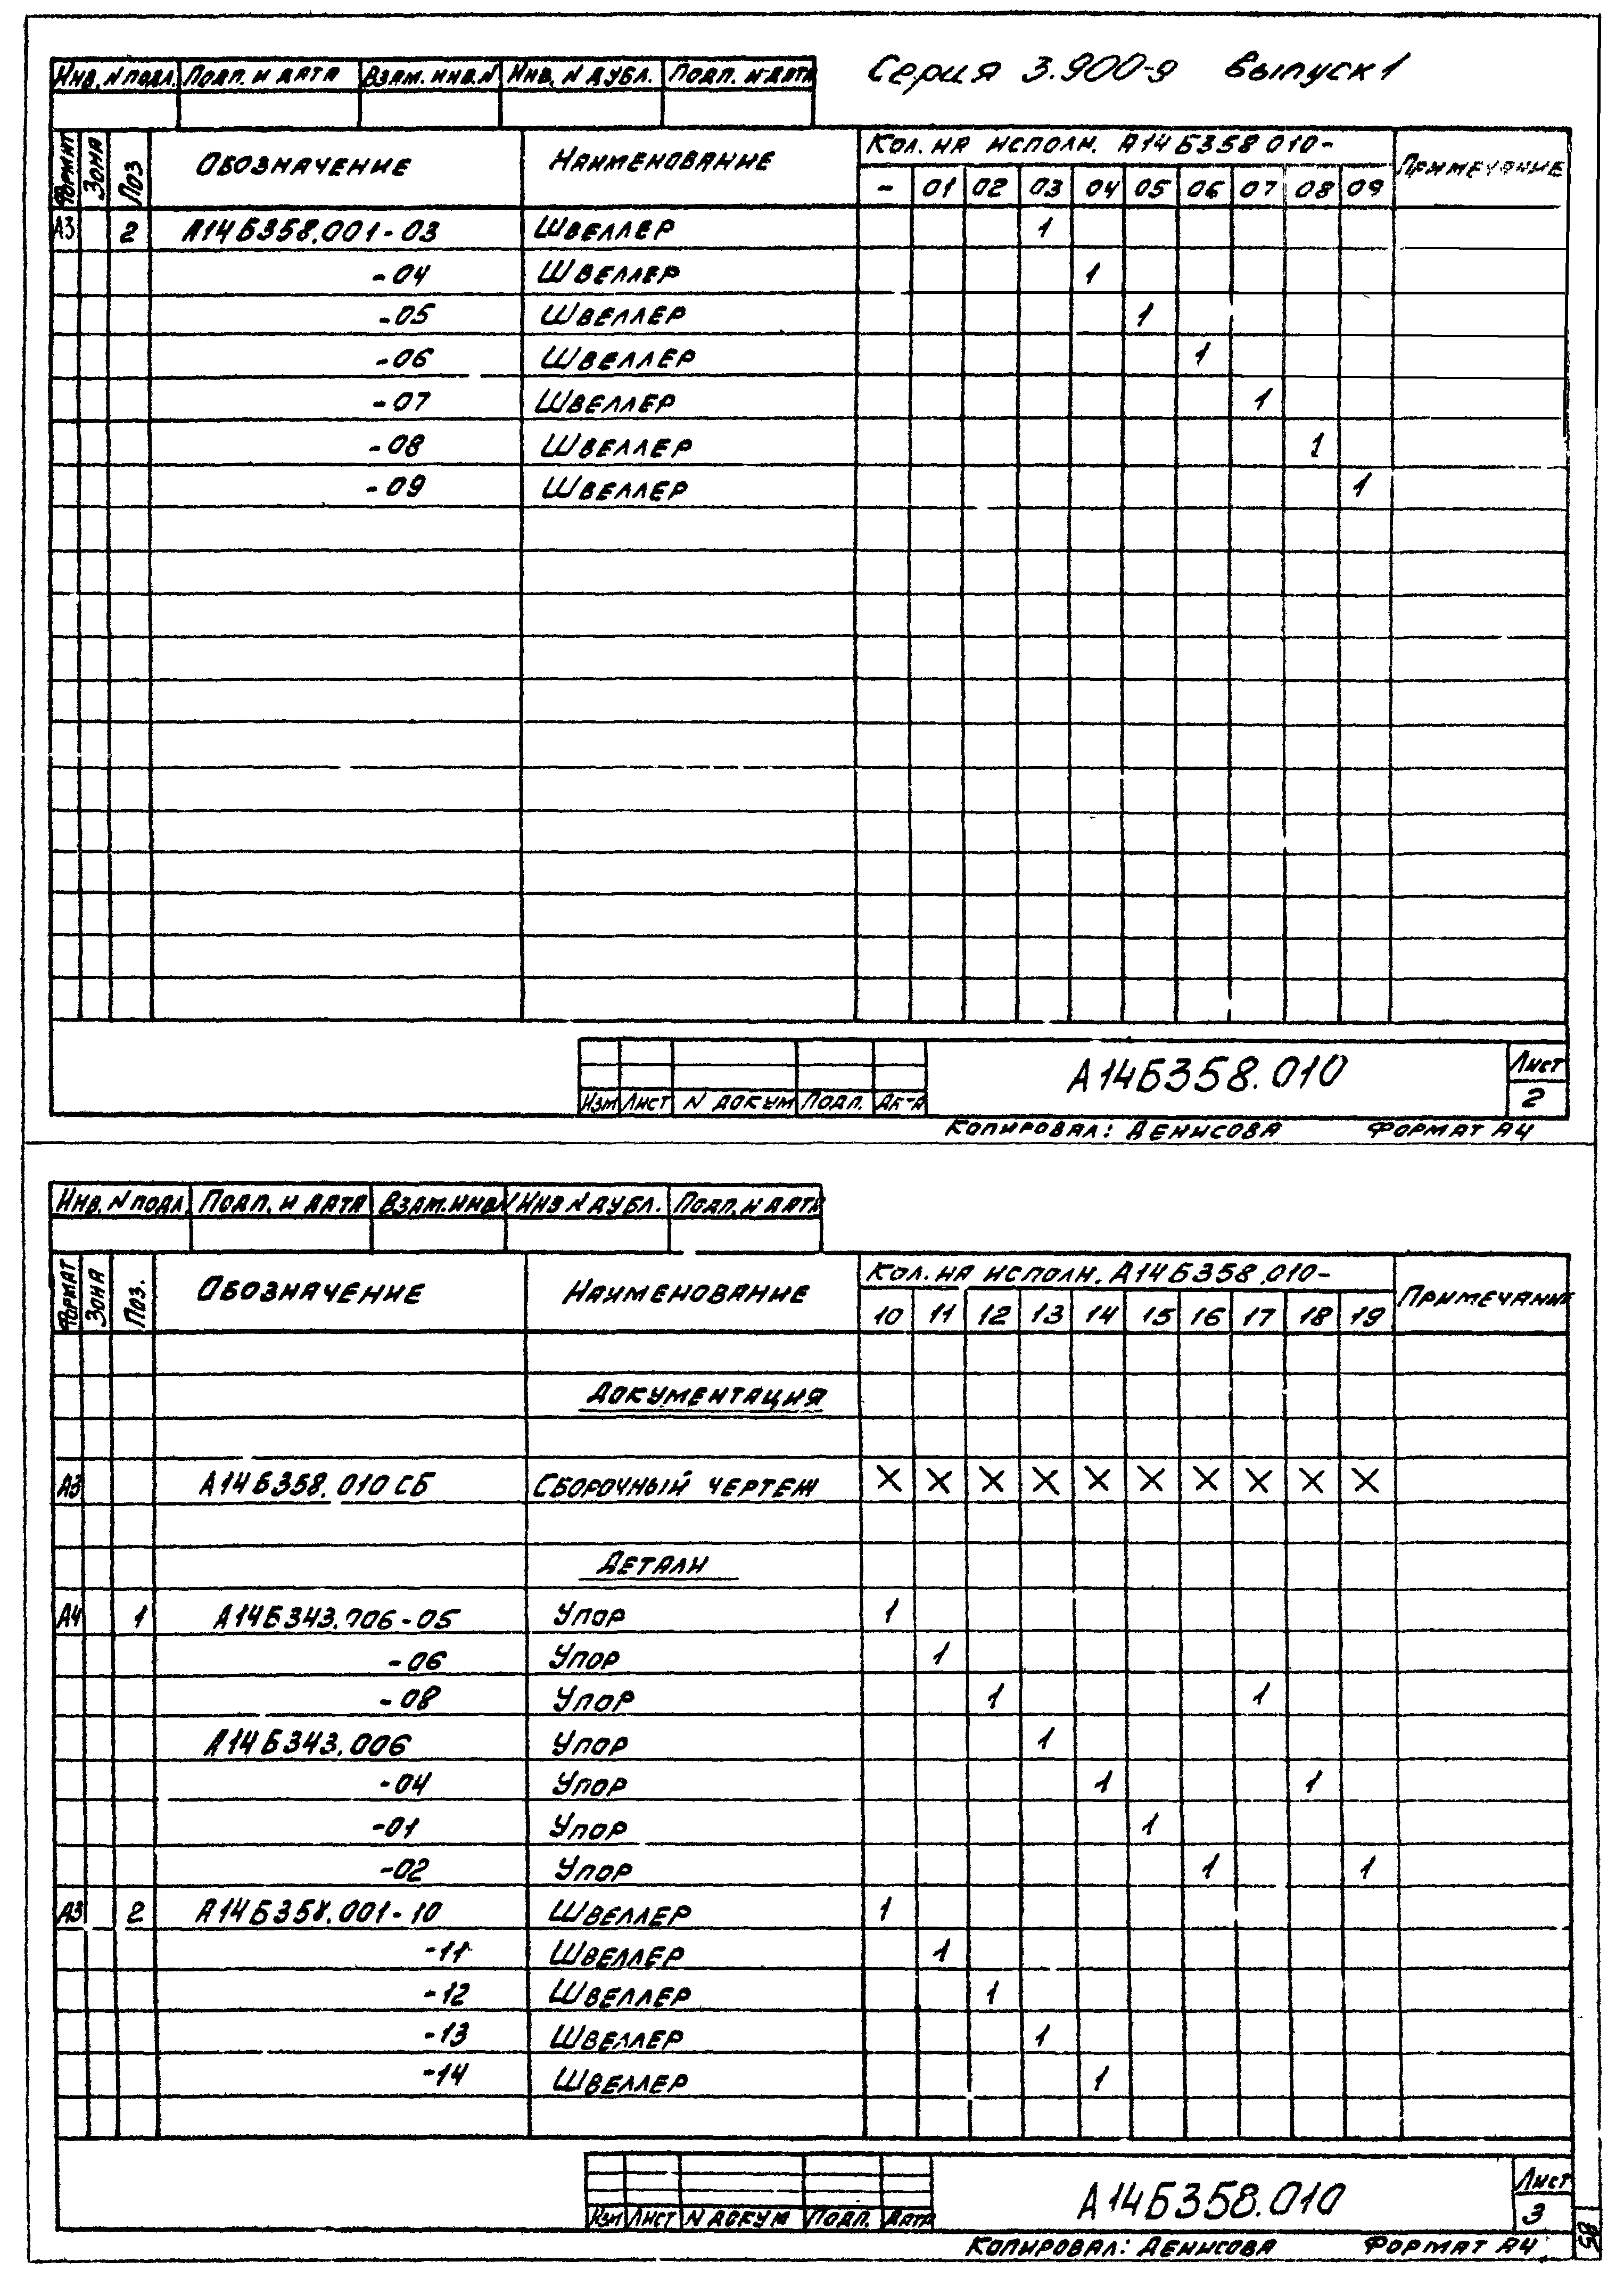 Серия 3.900-9 Выпуск 1
Инв. N подл. Подп. и дата Взам. инв. N Инв. N дубл. Подп. и дата
Формат Зона Поз Обозначение Наименование Кол. на исполн. А14Б358.010- Примечание
- 01 02 03 04 05 06 07 08 09
А3 2 А14Б358.001-03 Швеллер 1
-04 Швеллер 1
-05 Швеллер 1
-06 Швеллер 1
-07 Швеллер 1
-08 Швеллер 1
-09 Швеллер 1
А14Б358.010 Лист
2
Изм Лист N докум Подп. Дата
Копировал: Денисова Формат А4
Инв. N подл. Подп. и дата Взам. инв. N Инв N дубл. Подп. и дата
Формат Зона Поз. Обозначение Наименование Кол. на исполн. А14Б358.010- Примечание
10 11 12 13 14 15 16 17 18 19
Документация
А3 А14Б358.010 СБ Сборочный чертеж X X X X X X X X X X
Детали
А4 1 А14Б343.006-05 Упор 1
-06 Упор 1
-08 Упор 1 1
А14Б343.006 Упор 1
-04 Упор 1 1
-01 Упор 1
-02 Упор 1 1
А3 2 А14Б358.001-10 Швеллер 1
-11 Швеллер 1
-12 Швеллер 1
-13 Швеллер 1
-14 Швеллер 1
А14Б358.010 Лист
3
Изм Лист N докум Подп. Дата
Копировал: Денисова Формат А4